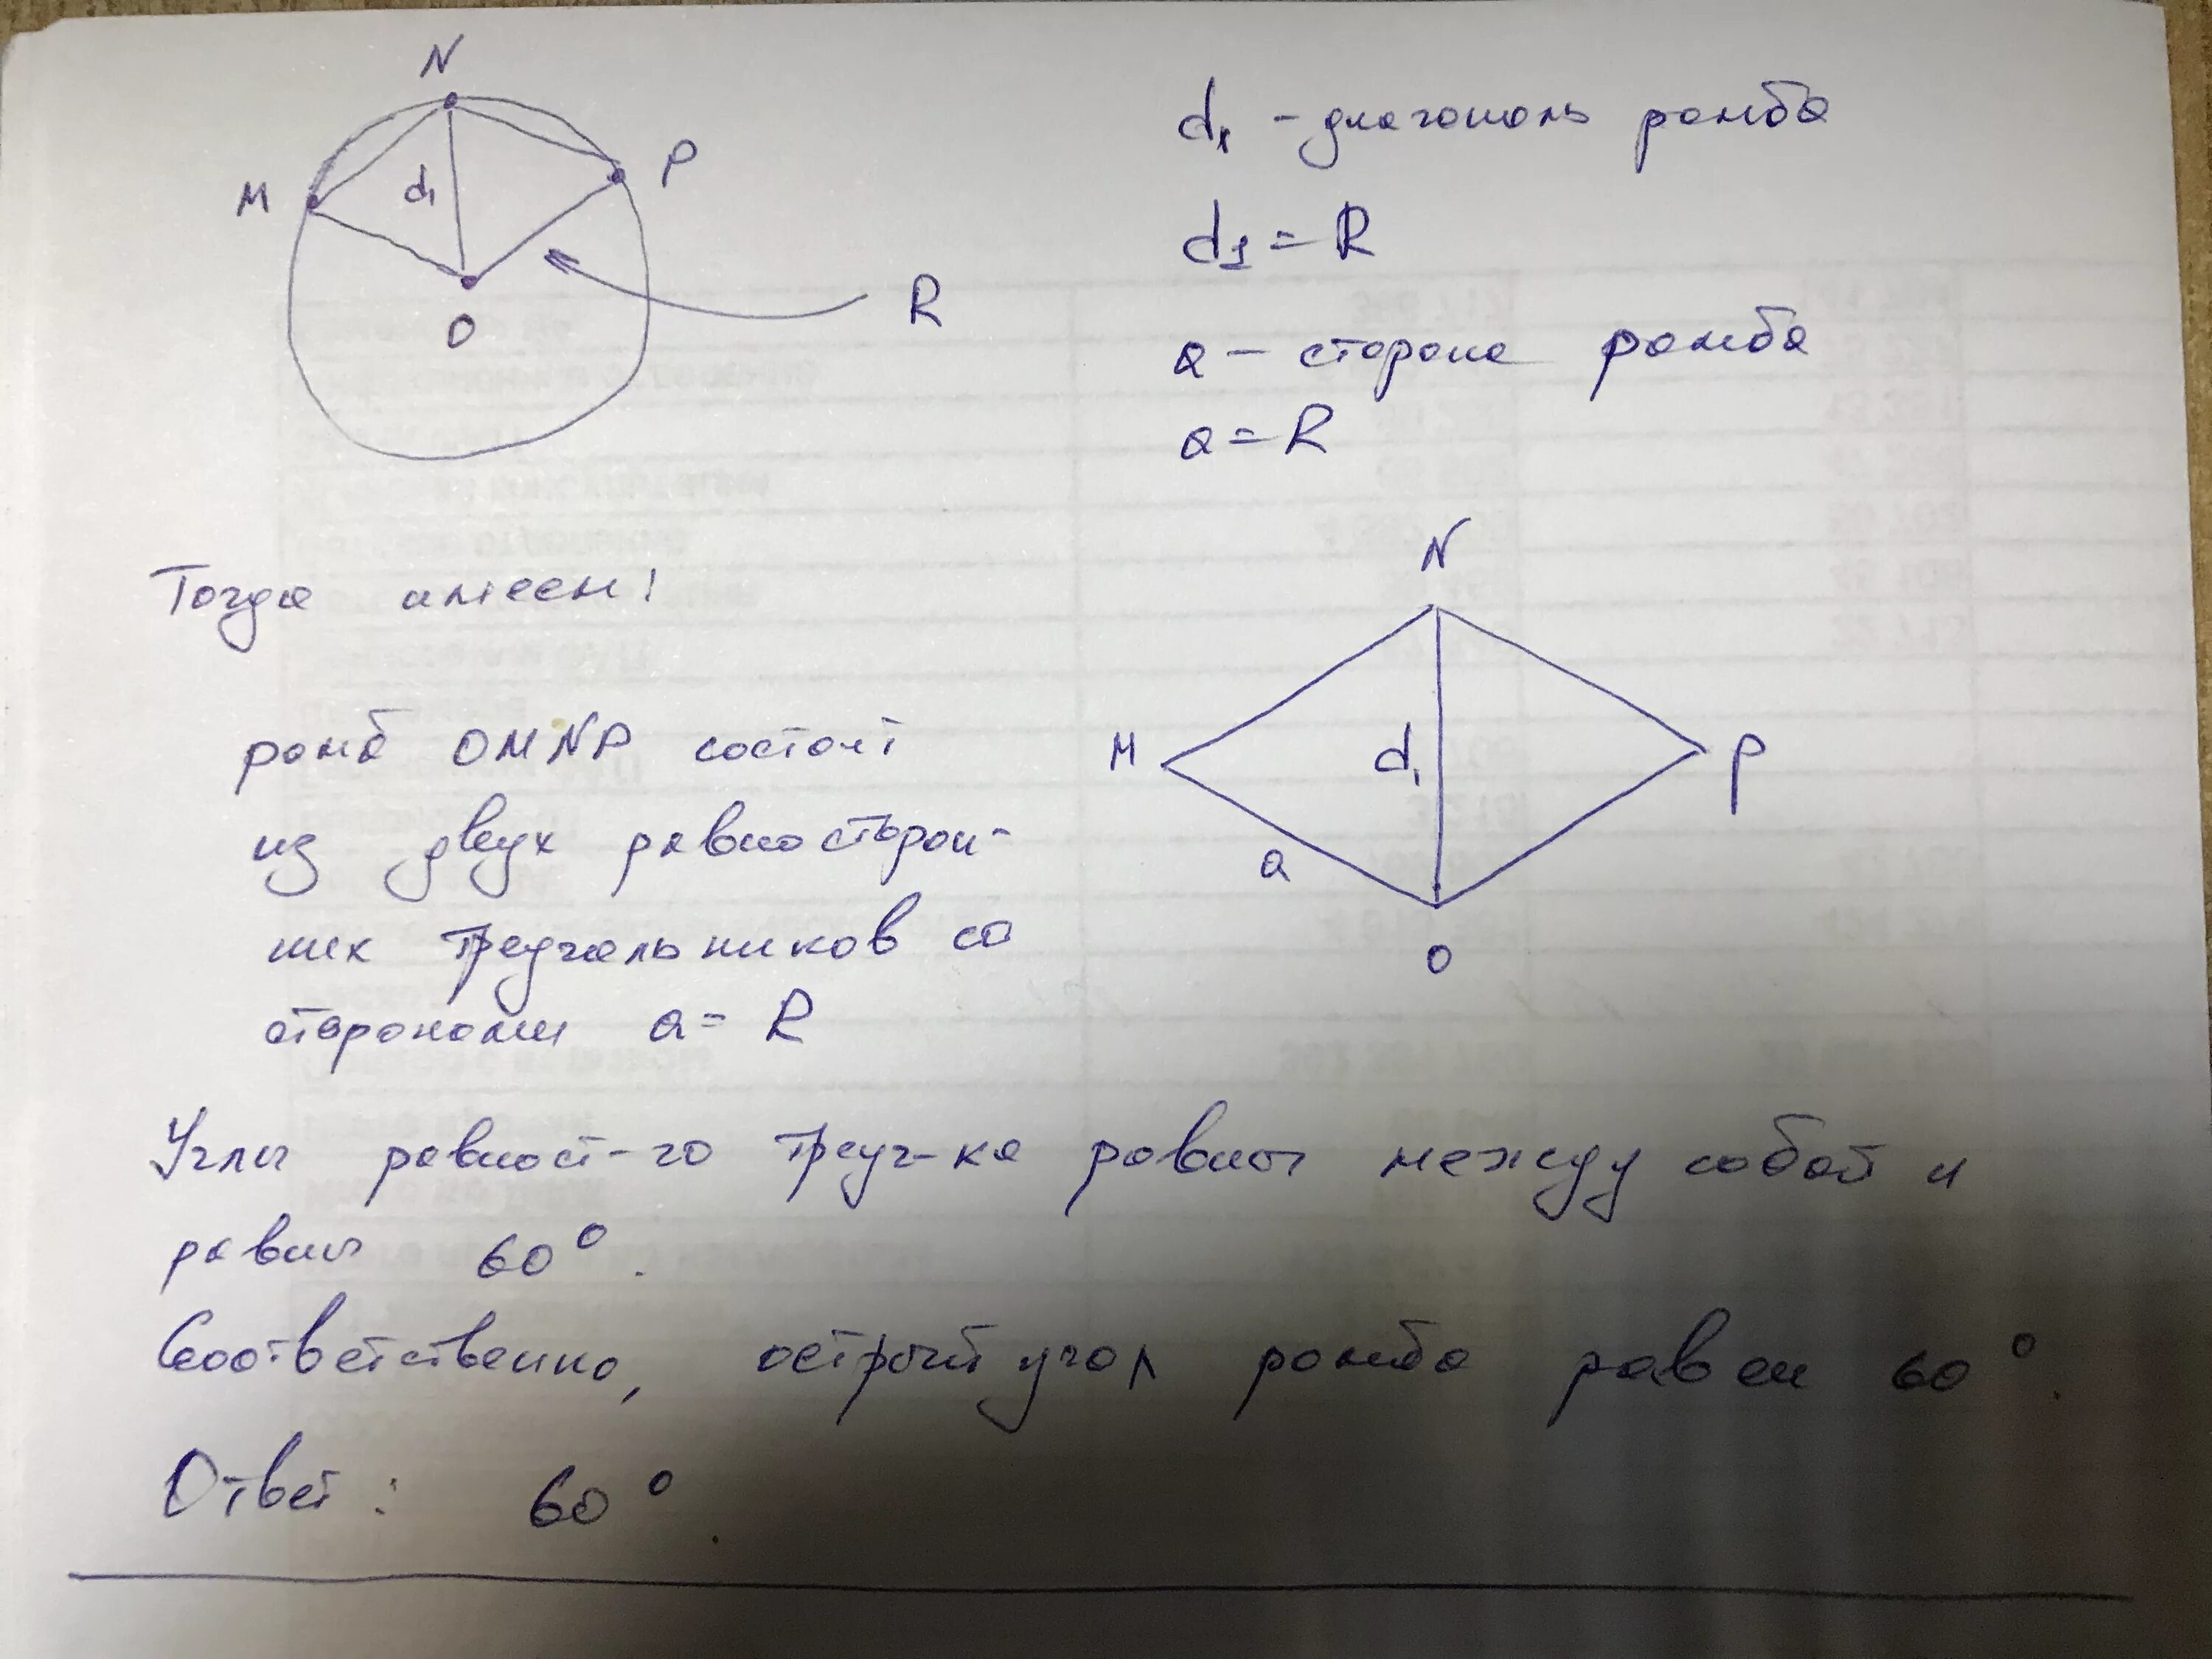 N
M
d₁
P
O
R
d₁ - диагональ ромба
d₁ = R
a - сторона ромба
a = R
Тогда имеем:
N
M
d₁
P
a
O
ромб OMNP состоит
из двух равносторон-
них треугольников со
сторонами a = R
Углы равност-го треуг-ка равны между собой и
равны 60°.
Соответственно, острый угол ромба равен 60°.
Ответ: 60°.